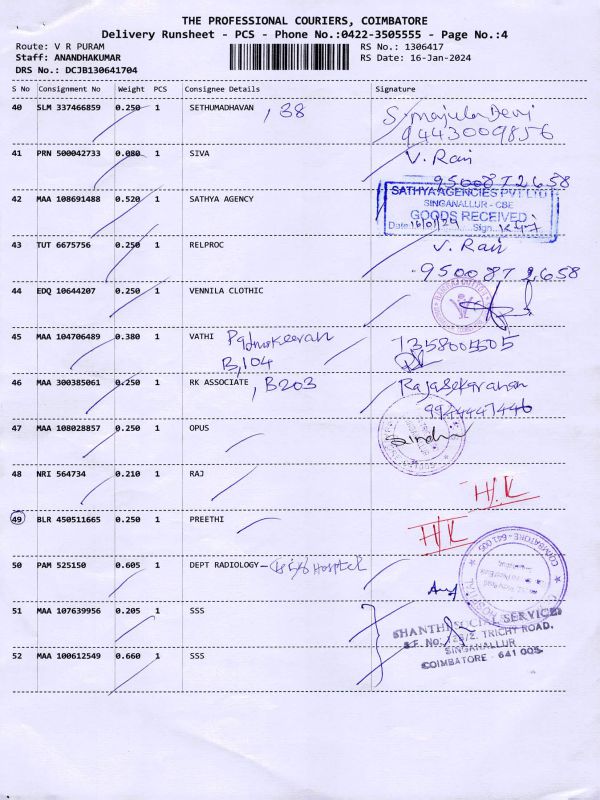 THE PROFESSIONAL COURIERS, COIMBATORE
Delivery Runsheet - PCS - Phone No.:0422-3505555 - Page No.:4
Route: V R PURAM
RS No.: 1306417
Staff: ANANDHAKUMAR
RS Date: 16-Jan-2024
DRS No.: DCJB130641704
S No Consignment No Weight PCS Consignee Details Signature
40 SLM 337466859 0.250 1 SETHUMADHAVAN , 38
9443009856
41 PRN 500042733 0.080 1 SIVA V. Rani
9500872658
42 MAA 108691488 0.520 1 SATHYA AGENCY
SATHYA AGENCIES PVT LTD
SINGANALLUR - CBE
GOODS RECEIVED
Date 16/01/24 Sign.
43 TUT 6675756 0.250 1 RELPROC V. Rani
9500872658
44 EDQ 10644207 0.250 1 VENNILA CLOTHIC
45 MAA 104706489 0.380 1 VATHI
B,104
7358005505
46 MAA 300385061 0.250 1 RK ASSOCIATE , B203 Rajasekaran
9944447446
47 MAA 108028857 0.250 1 OPUS
48 NRI 564734 0.210 1 RAJ H/K
49 BLR 450511665 0.250 1 PREETHI H/K
50 PAM 525150 0.605 1 DEPT RADIOLOGY- Hospital
COIMBATORE - 641 005
51 MAA 107639956 0.205 1 SSS
SHANTHI SOCIAL SERVICES
TRICHY ROAD,
SINGANALLUR
COIMBATORE - 641 005.
52 MAA 100612549 0.660 1 SSS